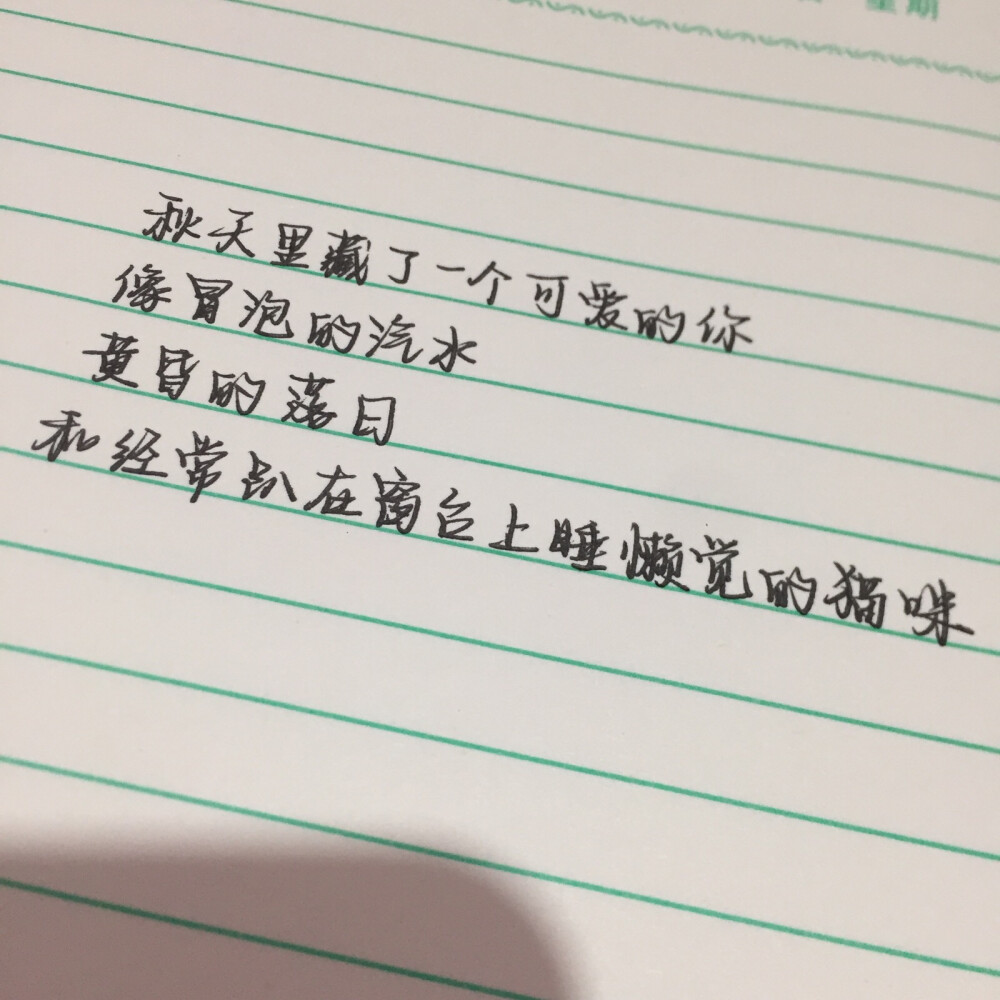 星期
秋天里藏了一个可爱的你
像冒泡的汽水
黄昏的落日
和经常趴在窗台上睡懒觉的猫咪